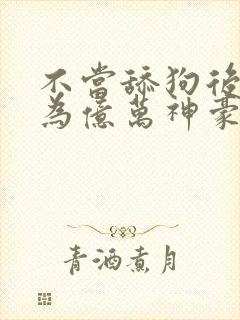 不當舔狗後
為億萬神豪
青酒煮月